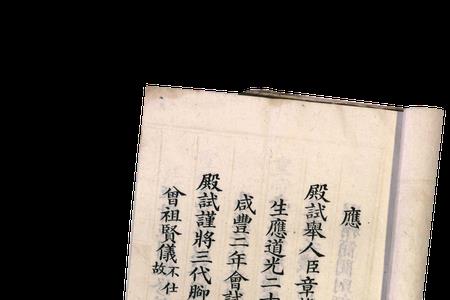 應
殿試舉人臣章
生應道光二十
咸豐二年會試
殿試謹將三代腳
曾祖賢儀不仕故